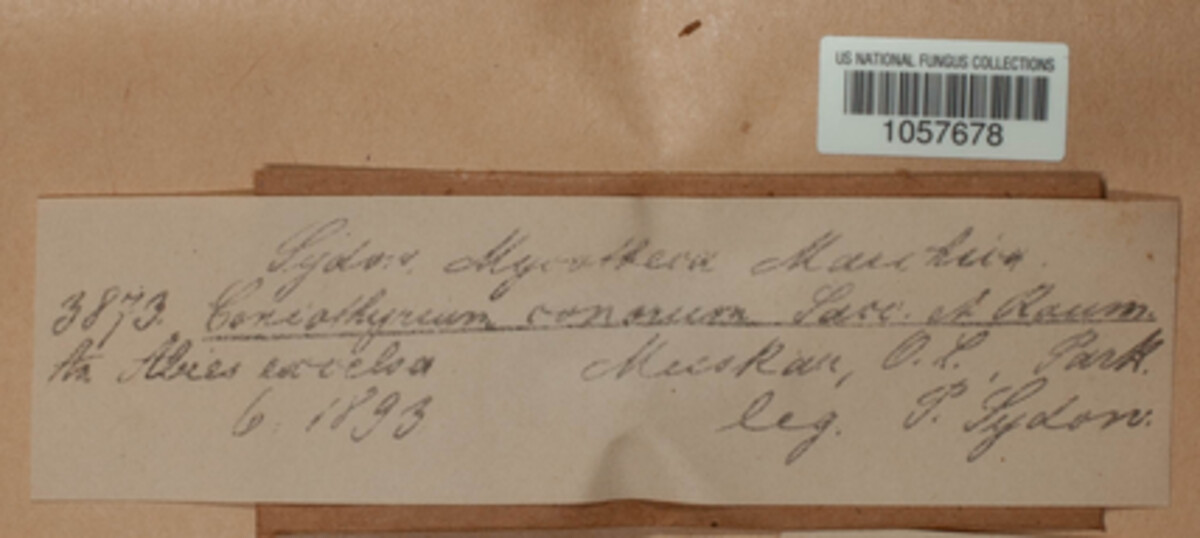 US NATIONAL FUNGUS COLLECTIONS
1057678
Sydow, Mycotheca Marchica.
3873. Coniothyrium conorum Sacc. et Roum.
An Abies excelsa Muskau, O. L., Park.
6. 1893 leg. P. Sydow.